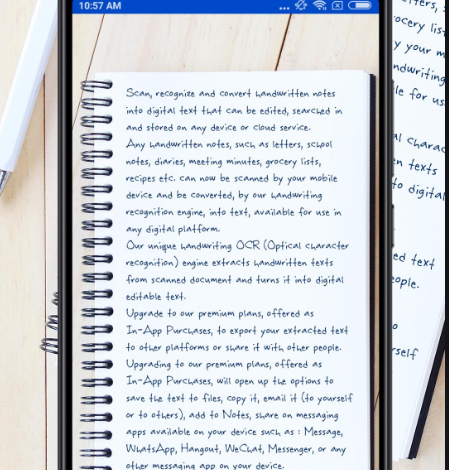 10:57 AM
Scan, recognize and convert handwritten notes
into digital text that can be edited, searched in
and stored on any device or cloud service.
Any handwritten notes, such as letters, school
notes, diaries, meeting minutes, grocery lists,
recipes etc. can now be scanned by your mobile
device and be converted, by our handwriting
recognition engine, into text, available for use in
any digital platform.
Our unique handwriting OCR (Optical character
recognition) engine extracts handwritten texts
from scanned document and turns it into digital
editable text.
Upgrade to our premium plans, offered as
In-App Purchases, to export your extracted text
to other platforms or share it with other people.
Upgrading to our premium plans, offered as
In-App Purchases, will open up the options to
save the text to files, copy it, email it (to yourself
or to others), add to Notes, share on messaging
apps available on your device such as : Message,
WhatsApp, Hangout, WeChat, Messenger, or any
other messaging app on your device.
y your m
le for us
en texts
to digital
ed text